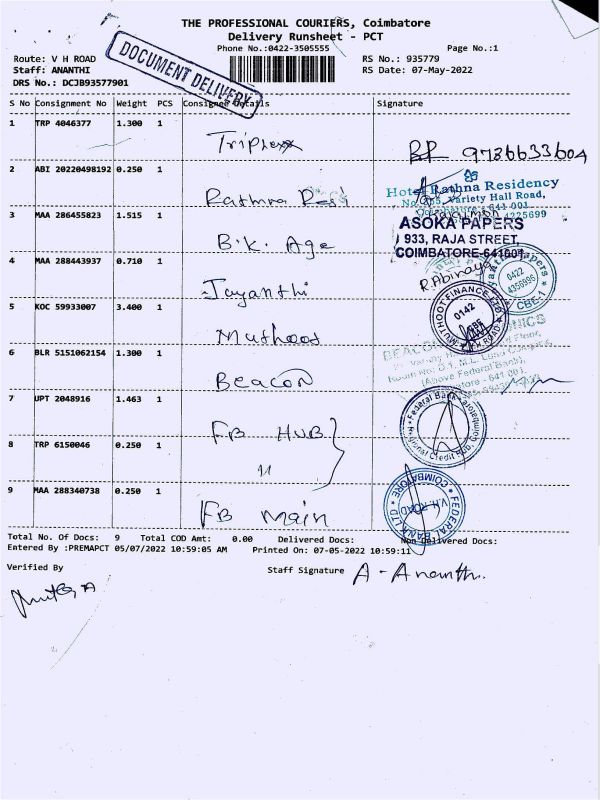 THE PROFESSIONAL COURIERS, Coimbatore
Delivery Runsheet - PCT
Phone No.:0422-3505555
Page No.:1
Route: V H ROAD
Staff: ANANTHI
DRS No.: DCJB93577901
DOCUMENT DELIVERY
RS No.: 935779
RS Date: 07-May-2022
S No Consignment No Weight PCS Consignee Details Signature
1 TRP 4046377 1.300 1 Triplexx 9786633604
2 ABI 20220498192 0.250 1 Rathna Resi
Hotel Rathna Residency
Variety Hall Road,
3 MAA 286455823 1.515 1 B.K. Age
ASOKA PAPERS
933, RAJA STREET,
COIMBATORE-641001.
4 MAA 288443937 0.710 1 Jayanthi R.Abinaya
0422
4356995
CBE-1
5 KOC 59933007 3.400 1 Muthoot
MUTHOOT FINANCE LTD
0142
V.H. ROAD
6 BLR 5151062154 1.300 1 Beacon
(Above Federal Bank),
7 UPT 2048916 1.463 1 FB HUB
Federal Bank
8 TRP 6150046 0.250 1 "
9 MAA 288340738 0.250 1 FB Main
FEDERAL BANK LTD
COIMBATORE
V.H. ROAD
Total No. Of Docs: 9 Total COD Amt: 0.00 Delivered Docs: Non Delivered Docs:
Entered By :PREMAPCT 05/07/2022 10:59:05 AM Printed On: 07-05-2022 10:59:11
Verified By
Staff Signature A - Ananthi.